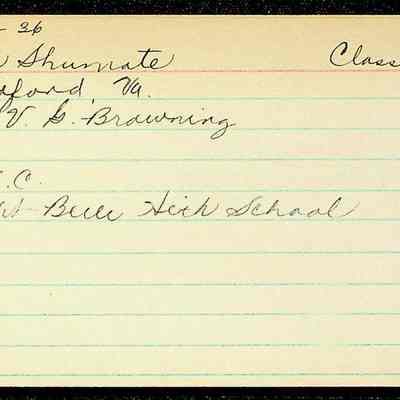 - 36
Shumate Class
ford Va.
V. G. Browning
.C.
High School